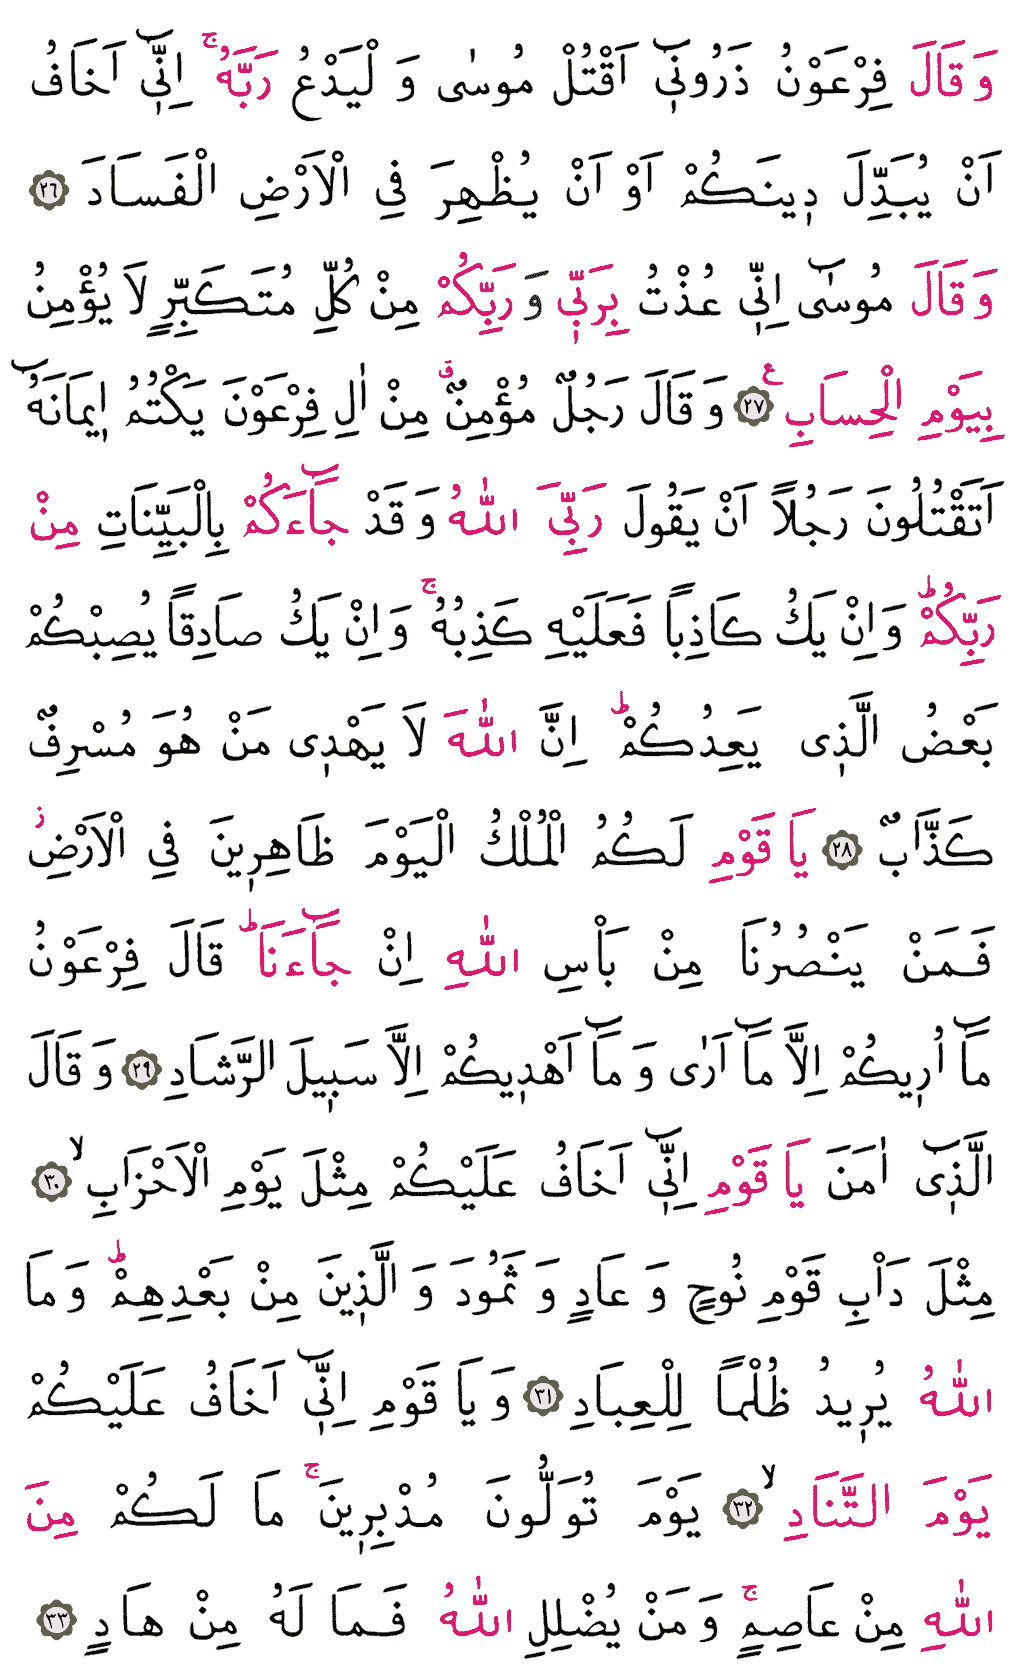 وَ قَالَ فِرْعَوْنُ ذَرُونٖٓي اَقْتُلْ مُوسٰى وَ لْيَدْعُ رَبَّهُۚ اِنّٖٓي اَخَافُ
اَنْ يُبَدِّلَ دٖينَكُمْ اَوْ اَنْ يُظْهِرَ فِي الْاَرْضِ الْفَسَادَ ﴿٢٦﴾
وَ قَالَ مُوسٰٓى اِنّٖي عُذْتُ بِرَبّٖي وَ رَبِّكُمْ مِنْ كُلِّ مُتَكَبِّرٍ لَا يُؤْمِنُ
بِيَوْمِ الْحِسَابِ ع ﴿٢٧﴾ وَ قَالَ رَجُلٌ مُؤْمِنٌۗ مِنْ اٰلِ فِرْعَوْنَ يَكْتُمُ اٖيمَانَهُٓ
اَتَقْتُلُونَ رَجُلًا اَنْ يَقُولَ رَبِّيَ اللّٰهُ وَ قَدْ جَٓاءَكُمْ بِالْبَيِّنَاتِ مِنْ
رَبِّكُمْؕ وَ اِنْ يَكُ كَاذِبًا فَعَلَيْهِ كَذِبُهُۚ وَ اِنْ يَكُ صَادِقًا يُصِبْكُمْ
بَعْضُ الَّذٖي يَعِدُكُمْؕ اِنَّ اللّٰهَ لَا يَهْدٖي مَنْ هُوَ مُسْرِفٌ
كَذَّابٌ ﴿٢٨﴾ يَا قَوْمِ لَكُمُ الْمُلْكُ الْيَوْمَ ظَاهِرٖينَ فِي الْاَرْضِؗ
فَمَنْ يَنْصُرُنَا مِنْ بَاْسِ اللّٰهِ اِنْ جَٓاءَنَاؕ قَالَ فِرْعَوْنُ
مَٓا اُرٖيكُمْ اِلَّا مَٓا اَرٰى وَ مَٓا اَهْدٖيكُمْ اِلَّا سَبٖيلَ الرَّشَادِ ﴿٢٩﴾ وَ قَالَ
الَّذٖٓي اٰمَنَ يَا قَوْمِ اِنّٖٓي اَخَافُ عَلَيْكُمْ مِثْلَ يَوْمِ الْاَحْزَابِۙ ﴿٣٠﴾
مِثْلَ دَاْبِ قَوْمِ نُوحٍ وَ عَادٍ وَ ثَمُودَ وَ الَّذٖينَ مِنْ بَعْدِهِمْؕ وَ مَا
اللّٰهُ يُرٖيدُ ظُلْمًا لِلْعِبَادِ ﴿٣١﴾ وَ يَا قَوْمِ اِنّٖٓي اَخَافُ عَلَيْكُمْ
يَوْمَ التَّنَادِۙ ﴿٣٢﴾ يَوْمَ تُوَلُّونَ مُدْبِرٖينَۚ مَا لَكُمْ مِنَ
اللّٰهِ مِنْ عَاصِمٍۚ وَ مَنْ يُضْلِلِ اللّٰهُ فَمَا لَهُ مِنْ هَادٍ ﴿٣٣﴾